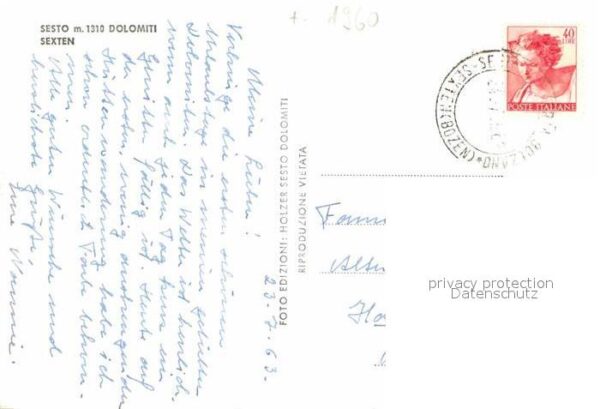 SESTO m. 1310 DOLOMITI
SEXTEN
+ 1960
40
LIRE
POSTE ITALIANE
SEXTEN (BOZEN) * BOLZANO
Meine Lieben!
Verbringe die ersten schönen
Urlaubstage in meinen geliebten
Dolomiten. Das Wetter ist herrlich
wenn auch jeden Tag
Gewitter fällig ist. Heute auf
der ersten, wenig anstrengenden
Hüttenwanderung habe ich
schon ordentlich Farbe bekom-
men.
Alle guten Wünsche und
herzlichste Grüße,
Eure
23-7-63.
FOTO EDIZIONI: HOLZER SESTO DOLOMITI
RIPRODUZIONE VIETATA
Fam
privacy protection
Datenschutz